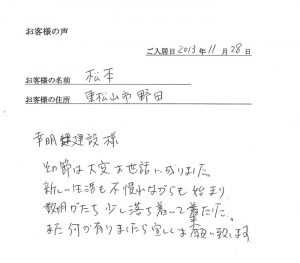 お客様の声
ご入居日 2013年 11月 28日
お客様の名前 松本
お客様の住所 東松山市 野田
幸明建設様
その節は大変お世話に成りました。
新しい生活も不慣れながらも始まり
数ヶ月がたち少し落ち着いて来た。
また何か有りましたら宜しくお願い致します